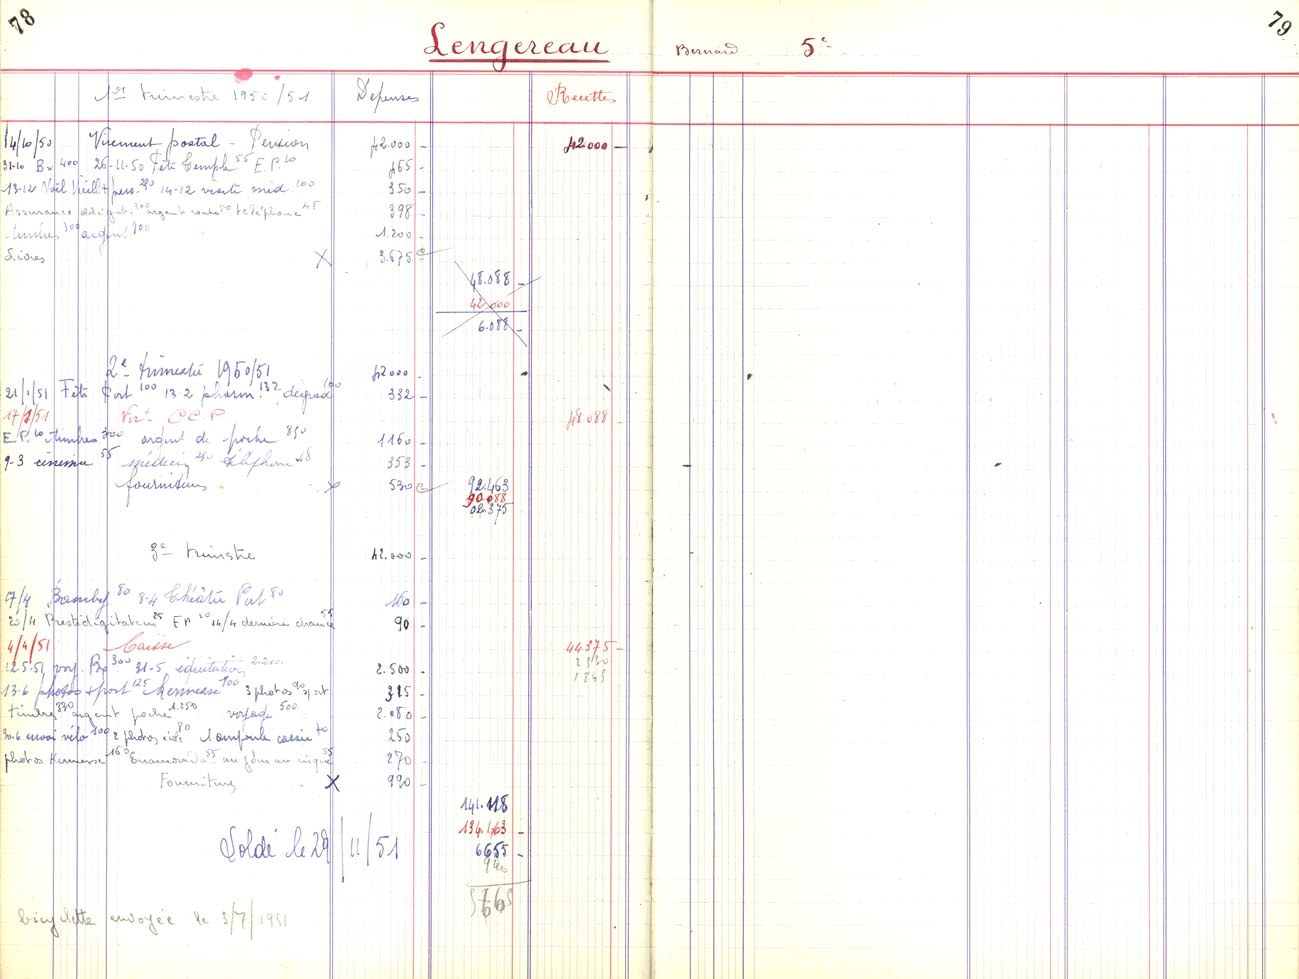 78
79
Lengereau Bernard 5e
1er trimestre 1950/51 Dépenses Recettes
14/10/50 Virement postal - Pension 42.000 - 42.000 -
31-10 Bx 400 26-11-50 Fête Temple 55 E.P. 10 465 -
13-12 Noël Vieill + pers. 250 14-12 visite méd. 100 350 -
Assurance argent téléphone 48 398 -
timbres 300 argent 900 1.200 -
Livres X 3.675
48.088 -
42.000
6.088 -
2e trimestre 1950/51 42.000 -
21/1/51 Fête Port 100 13-2 pharm. 132 dégrad 100 332 -
17/2/51 Virt CCP 48.088
E.P. 10 timbres 300 argent de poche 850 1160 -
9-3 cinéma 55 médecin 250 téléphone 48 353 -
fournitures X 530 92.463
90.088
02.375
3e trimestre 42.000 -
07/4 80 8-4 Théâtre 80 160 -
20/4 Prestidigitateur 25 EP 10 14/4 dernière chance 55 90 -
4/4/51 Caisse 44375 -
12-5-51 voy. Bx 300 31-5 équitation 2.200 2.500 - 2530
1845
13-6 photos sport 125 Kermesse 100 3 photos 90 sport 315 -
timbre 330 argent poche 1.250 voyage 500 2.080 -
30-6 envoi vélo 100 2 photos 80 1 ampoule cassée 70 250 -
photos Kermesse 160 Enamorada 55 un jour au cirque 55 270 -
Fournitures X 990 -
141.118
134.463 -
Soldé le 29/11/51 6655 -
940
5665
bicyclette envoyée le 3/7/1951